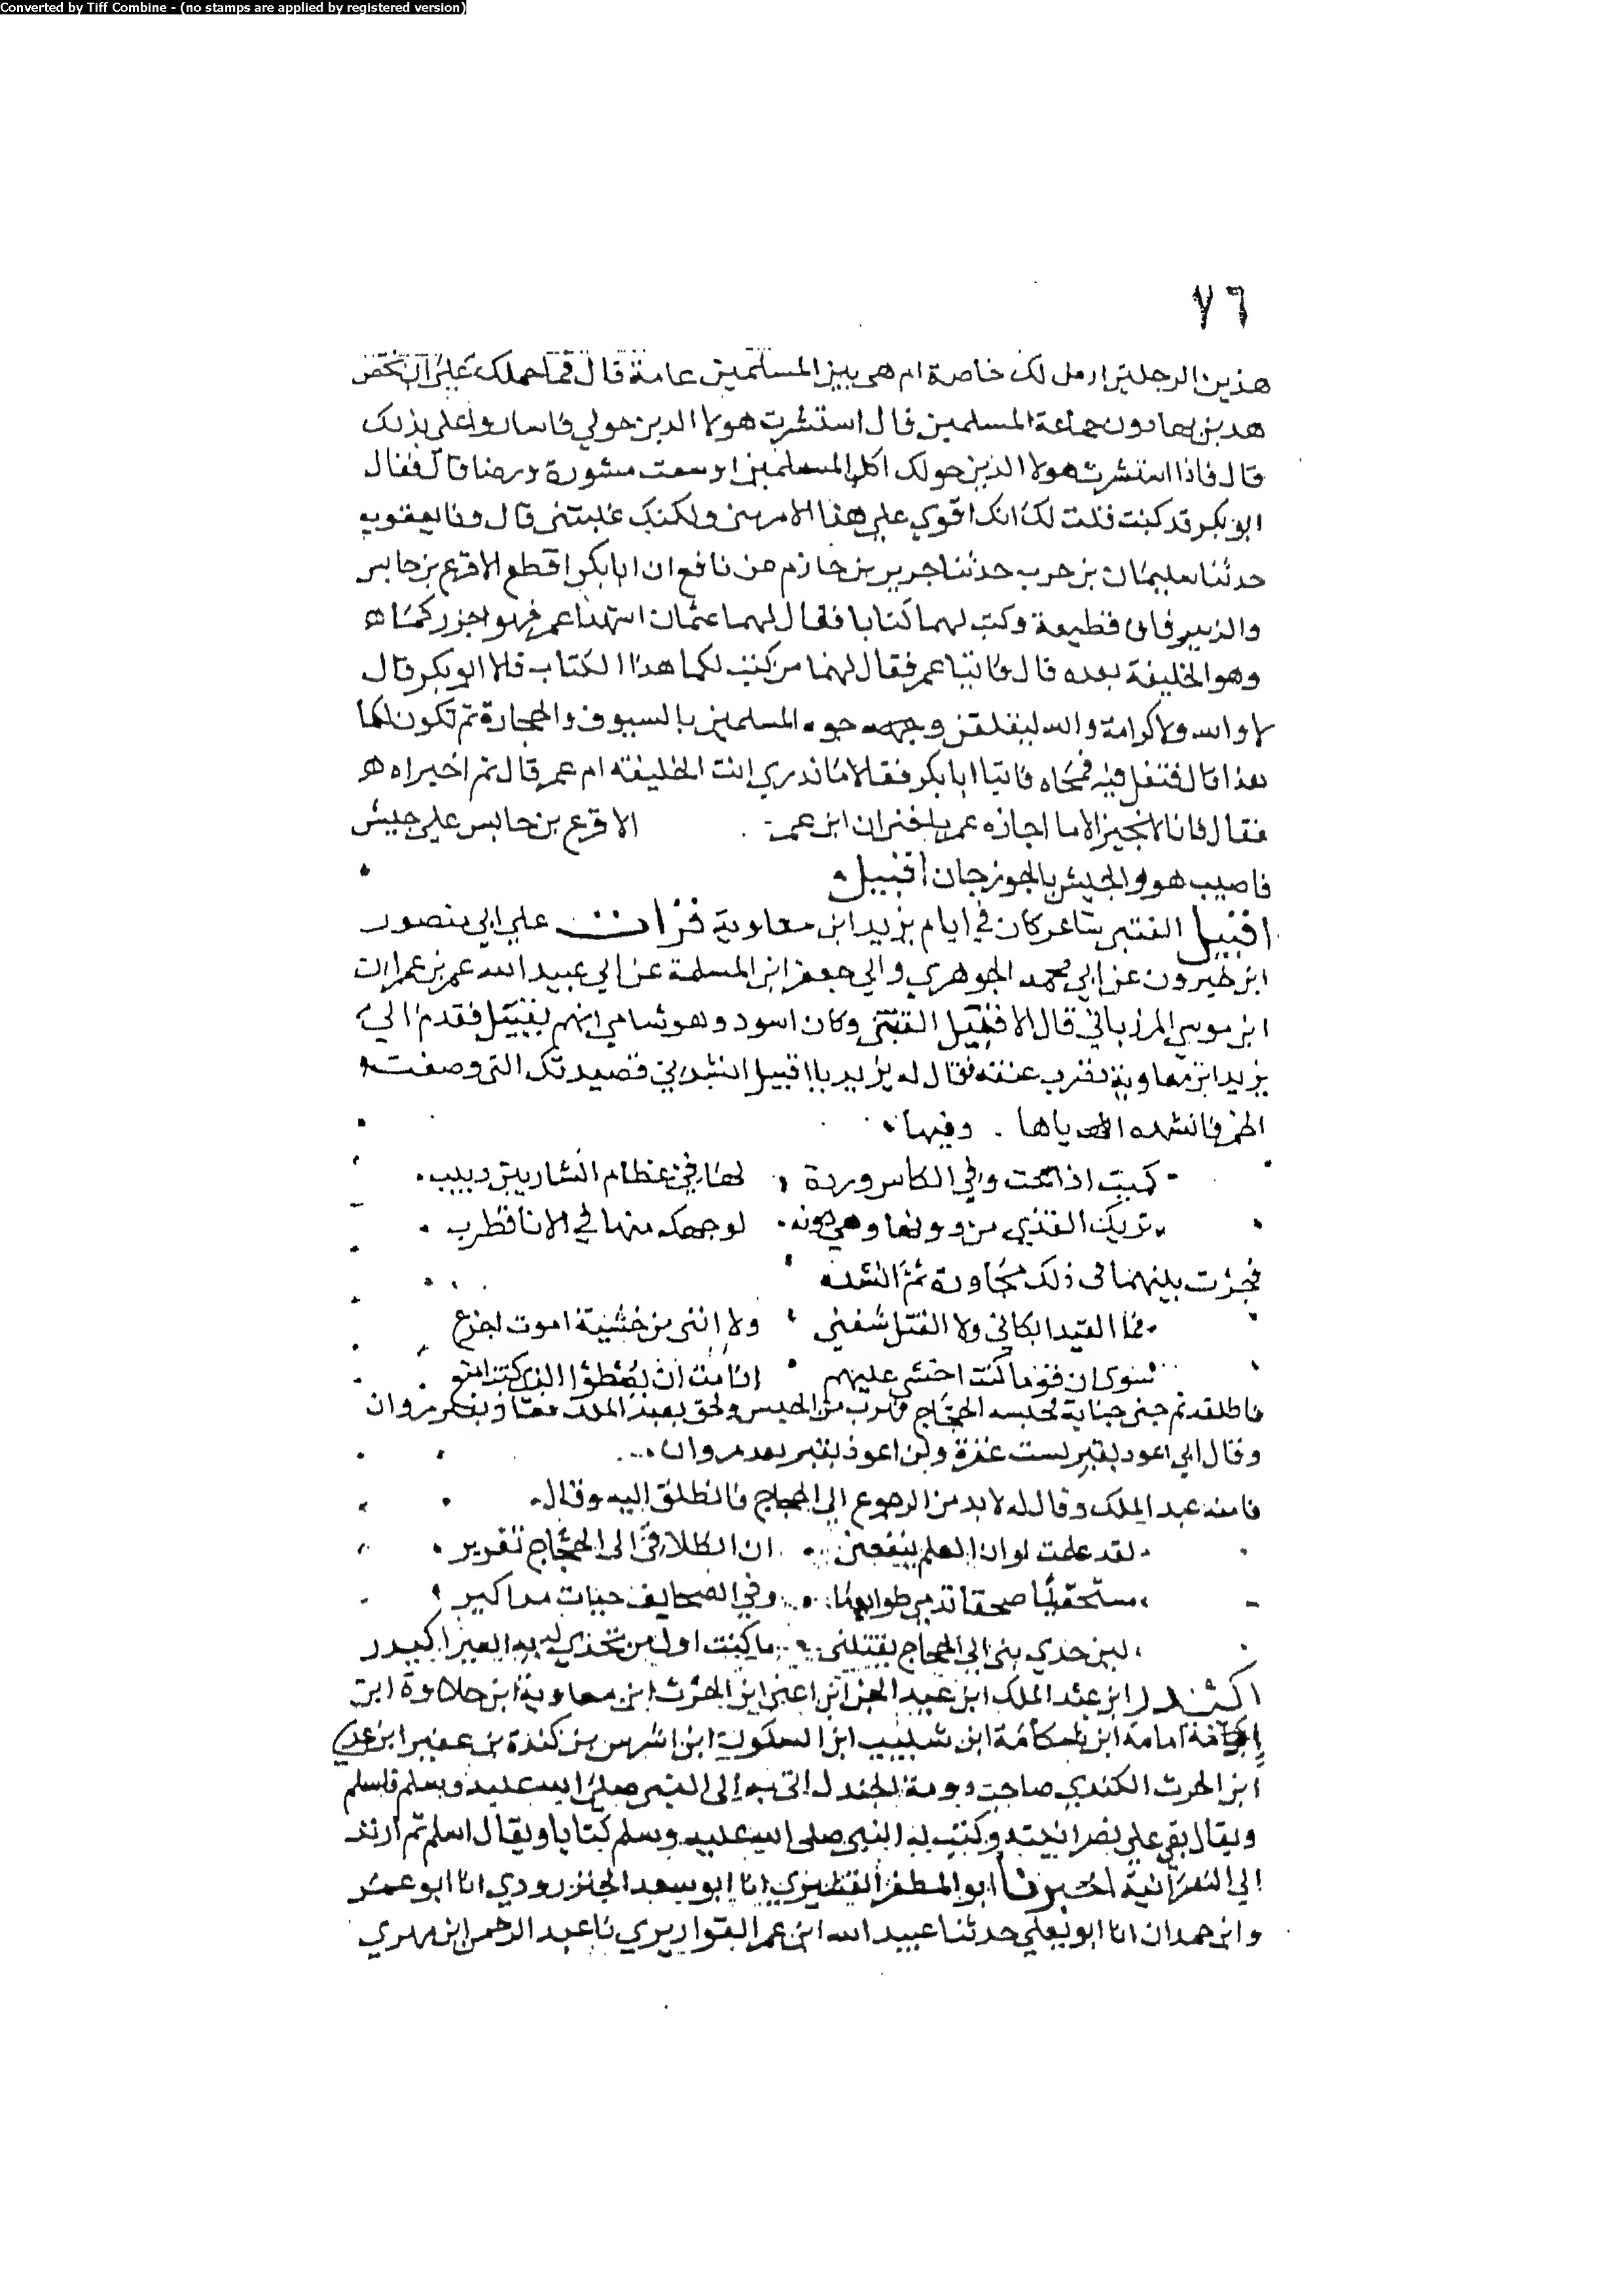 Converted by Tiff Combine - (no stamps are applied by registered version)
٧٦
هذين الرجلين ارض لك خاصة ام هى بين المسلمين عامة قال فما حملك على ان تخص
هذين بها دون جماعة المسلمين قال استشرت هولا الذين حولي فاشاروا على بذلك
قال فاذا استشرت هولا الذين حولك اكل المسلمين اوسعت مشورة ورضا قال فقال
ابو بكر قد كنت قلت لك انك اقوي على هذا الامر منى ولكنك غلبتنى قال ونا يعقوب
حدثنا سليمان بن حرب حدثنا جرير بن حازم عن نافع ان ابا بكر اقطع الاقرع بن حابس
والزبرقان قطيعة وكتب لهما كتابا فقال لهما عثمان اشهدا عمر فهو احرز كما
وهو الخليفة بعده قال فاتيا عمر فقال لهما من كتب لكما هذا الكتاب قالا ابو بكر قال
لا والله ولا كرامة والله ليفلقن وجوه المسلمين بالسيوف والحجارة ثم تكون لكما
هذا قال فتفل فيه فمحاه فاتيا ابا بكر فقالا ما ندري انت الخليفة ام عمر قال ثم اخبراه
فقال فانا لا نجيز الا ما اجازه عمر الاقرع بن حابس على جيش
فاصيب هو والجيش بالجوزجان اقيبل
اقيبل القينى شاعر كان في ايام يزيد ابن معاوية قرات على ابي منصور
ابن خيرون عن ابي محمد الجوهري وابي جعفر ابن المسلمة عن ابي عبيد الله عمر بن عمران
ابن موسى المرزباني قال الاقيبل القينى وكان اسود وهو شامي فقدم الى
يزيد ابن معاوية فقال له يزيد يا اقيبل انشدني قصيدتك التى وصفت
الخمر فانشده اياها . وفيها
كميت اذا شجت وفي الكاس وردة لها في عظام الشاربين دبيب
تريك القذي من دونها وهي دونه لوجهك منها في الانا قطوب
فجرت بينهما في ذلك محاورة ثم انشده
فما القيد ابكاني ولا القتل شفنى ولا اننى من خشية الموت اجزع
سوى ان قوما كنت اخشى عليهم اذا مت ان يعطوا الذي كنت امنع
فاطلقه ثم جنى جناية فحبسه الحجاج فهرب من الحبس ولحق بعبد الملك فعاذ بقبر مروان
وقال ابي اعوذ بقبر لست غزة ولن اعوذ بقبر بعد مروان
فامنه عبد الملك وقال له لا بد من الرجوع الى الحجاج فانطلق اليه وقال
لقد علمت لو ان العلم ينفعنى ان انطلاقى الى الحجاج تغرير
مستحقبا صحفا تدمى طوابعها وفي الصحايف حيات مناكير
لين حدي بى الى الحجاج يقتلنى ما كنت اول من تحدي به العير اكيدر
اكيدر ابن عبد الملك ابن عبد الجن ابن اعيى ابن الحرث ابن معاوية ابن حلاوة ابن
امامة ابن شكامة ابن شبيب ابن السكون ابن اشرس بن كندة بن عفير ابن عدي
ابن الحرث الكندي صاحب دومة الجندل اتى به الى النبى صلى الله عليه وسلم فاسلم
ويقال بقى على نصرانيته وكتب له النبي صلى الله عليه وسلم كتابا ويقال اسلم ثم ارتد
الى النصرانية اخبرنا ابو المظفر القشيري انا ابو سعد الجنزرودي انا ابو عمر
وابن حمدان انا ابو يعلي حدثنا عبيد الله ابن عمر القواريري نا عبد الرحمن ابن مهدي